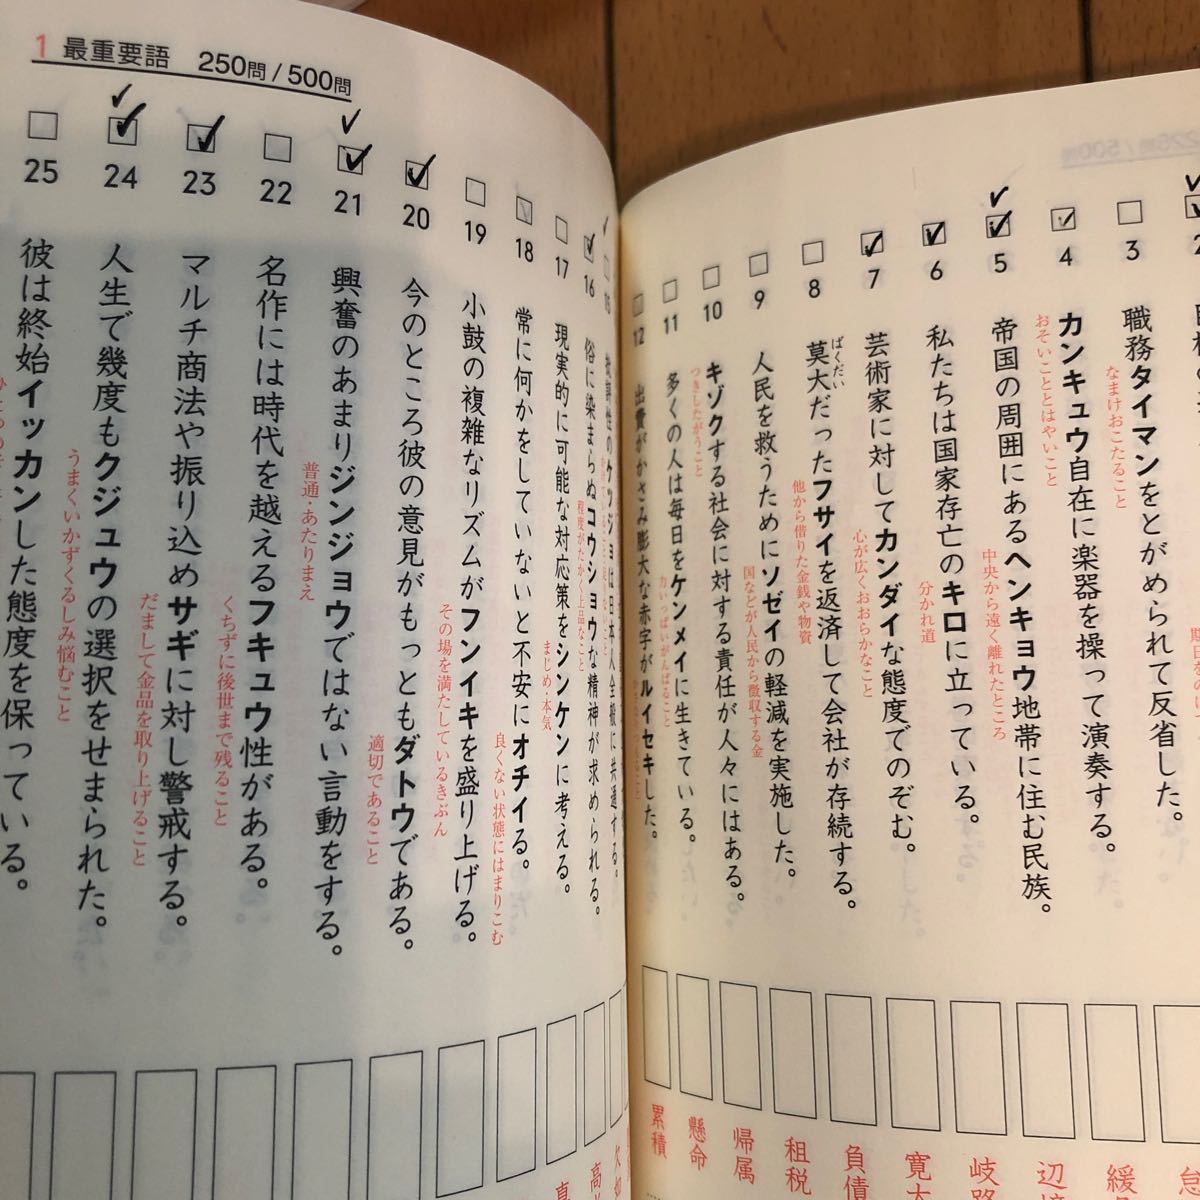 1 最重要語 250問/500問
3 職務タイマンをとがめられて反省した。
なまけおこたること
4 カンキュウ自在に楽器を操って演奏する。
おそいこととはやいこと
5 帝国の周囲にあるヘンキョウ地帯に住む民族。
中央から遠く離れたところ
6 私たちは国家存亡のキロに立っている。
分かれ道
7 芸術家に対してカンダイな態度でのぞむ。
心が広くおおらかなこと
8 莫大だったフサイを返済して会社が存続する。
ばくだい
他から借りた金銭や物資
9 人民を救うためにソゼイの軽減を実施した。
国などが人民から徴収する金
10 キゾクする社会に対する責任が人々にはある。
つきしたがうこと
11 多くの人は毎日をケンメイに生きている。
力いっぱいがんばること
12 出費がかさみ膨大な赤字がルイセキした。
緩
辺
岐路
寛大
負債
租税
帰属
懸命
累積
15 批評性のケツジョは日本人全般に共通する。
16 俗に染まらぬコウショウな精神が求められる。
程度がたかく上品なこと
17 現実的に可能な対応策をシンケンに考える。
まじめ・本気
18 常に何かをしていないと不安にオチイる。
良くない状態にはまりこむ
19 小鼓の複雑なリズムがフンイキを盛り上げる。
その場を満たしているきぶん
20 今のところ彼の意見がもっともダトウである。
適切であること
21 興奮のあまりジンジョウではない言動をする。
普通・あたりまえ
22 名作には時代を越えるフキュウ性がある。
くちずに後世まで残ること
23 マルチ商法や振り込めサギに対し警戒する。
だまして金品を取り上げること
24 人生で幾度もクジュウの選択をせまられた。
うまくいかずくるしみ悩むこと
25 彼は終始イッカンした態度を保っている。